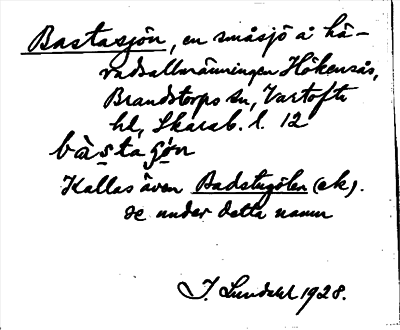 Bastasjön, en småsjö å hä-
radsallmänningen Hökensås,
Brandstorps sn, Vartofta
hd, Skarab. l. 12
bàsta ʃön
Kallas även Badstugölen (ek).
se under detta namn
J. Lundahl 1928.